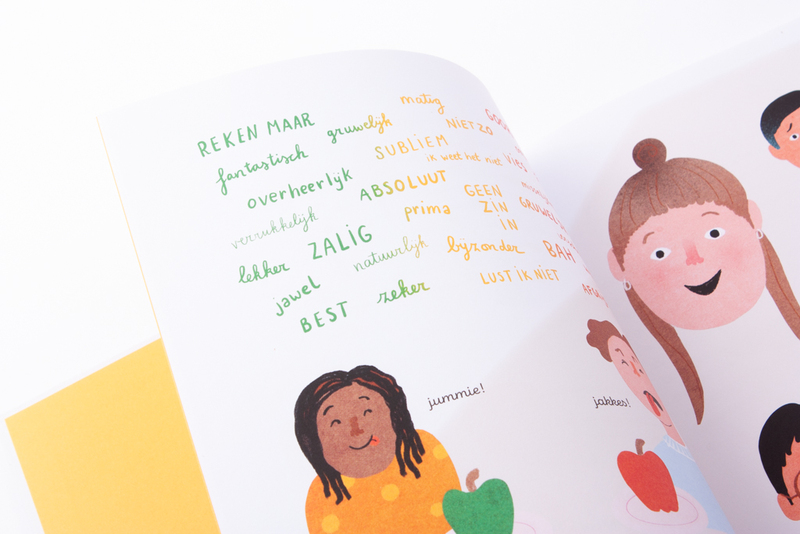 REKEN MAAR
matig
gruwelijk
NIET ZO
fantastisch
SUBLIEM
ik weet het niet
VIES
overheerlijk
ABSOLUUT
GEEN
ZIN
IN
verrukkelijk
prima
lekker
ZALIG
natuurlijk
bijzonder
BAH
jawel
LUST IK NIET
BEST
zeker
jummie!
jakkes!